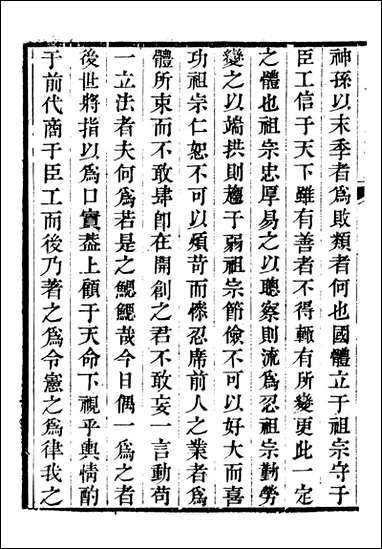 神孫以末季者爲敗類者何也國體立于祖宗守于
臣工信于天下雖有善者不得輒有所變更此一定
之體也祖宗忠厚易之以聰察則流爲忍祖宗勤勞
變之以端拱則趨于弱祖宗節儉不可以好大而喜
功祖宗仁恕不可以煩苛而慘忍席前人之業者爲
體所束而不敢肆卽在開創之君不敢妄一言動苟
一立法者夫何爲若是之鰓鰓哉今日偶一爲之者
後世將指以爲口實蓋上顧于天命下視乎輿情酌
于前代商于臣工而後乃著之爲令憲之爲律我之